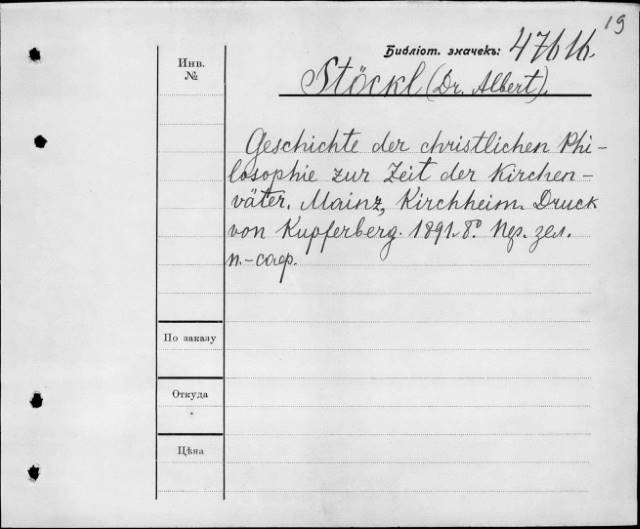 19
Библіот. значекъ:
Инв.
№
Stöckl (Dr. Albert).
Geschichte der christlichen Phi-
losophie zur Zeit der Kirchen-
väter. Mainz, Kirchheim. Druck
von Kupferberg. 1891. 8° Пер. зел.
п.-саф.
По заказу
Откуда
Цѣна